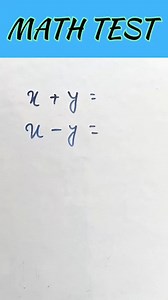 MATH TEST
x + y =
x - y =